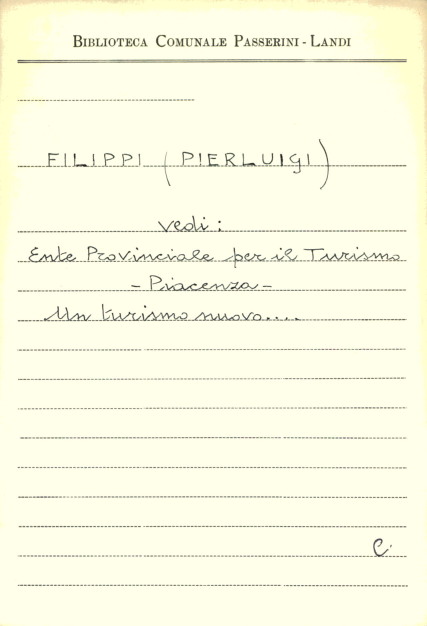 Biblioteca Comunale Passerini - Landi
FILIPPI (PIERLUIGI)
vedi:
Ente Provinciale per il Turismo
- Piacenza -
Un turismo nuovo....
C.